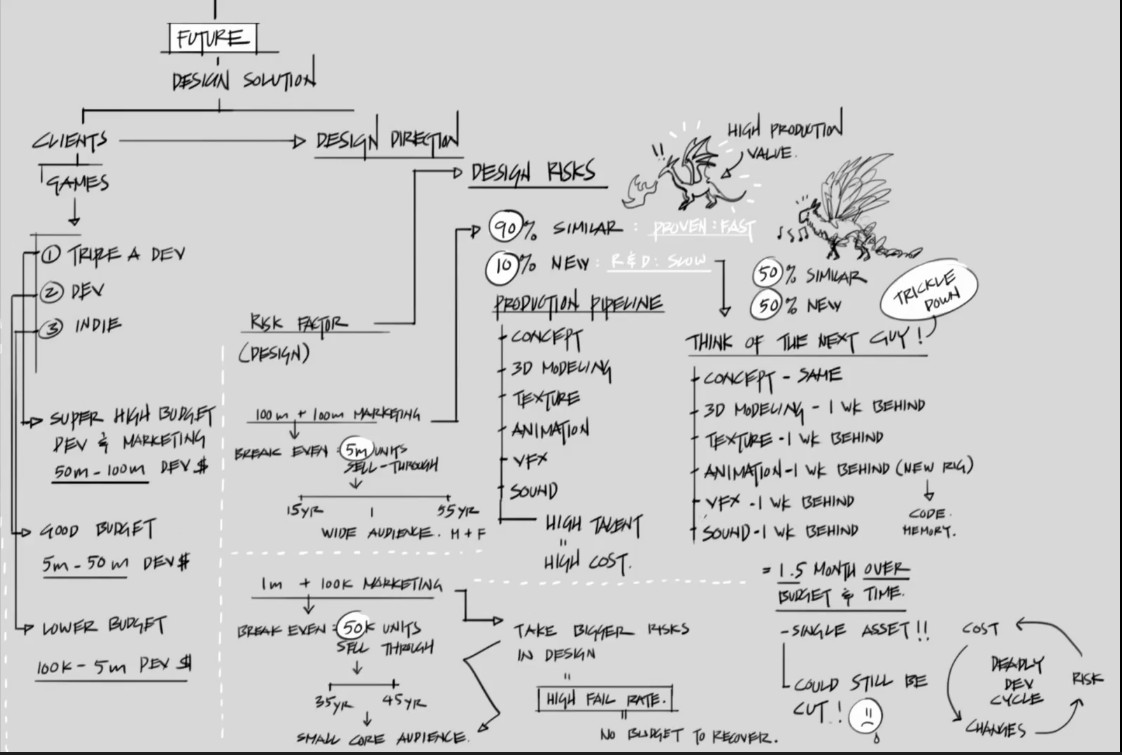 FUTURE
DESIGN SOLUTION
CLIENTS
DESIGN DIRECTION
GAMES
① TRIPLE A DEV
② DEV
③ INDIE
SUPER HIGH BUDGET
DEV & MARKETING
50m - 100m DEV $
GOOD BUDGET
5m - 50m DEV $
LOWER BUDGET
100K - 5m DEV $
RISK FACTOR
(DESIGN)
100m + 100m MARKETING
BREAK EVEN : 5m UNITS
SELL-THROUGH
15YR
55YR
WIDE AUDIENCE. M + F
1m + 100K MARKETING
BREAK EVEN : 50K UNITS
SELL THROUGH
35YR 45YR
SMALL CORE AUDIENCE.
DESIGN RISKS
!!
HIGH PRODUCTION
VALUE.
90% SIMILAR : PROVEN : FAST
10% NEW : R&D : SLOW
PRODUCTION PIPELINE
CONCEPT
3D MODELING
TEXTURE
ANIMATION
VFX
SOUND
HIGH TALENT
"
HIGH COST.
TAKE BIGGER RISKS
IN DESIGN
"
HIGH FAIL RATE.
"
NO BUDGET TO RECOVER.
50% SIMILAR
50% NEW
TRICKLE
DOWN
THINK OF THE NEXT GUY!
CONCEPT - SAME
3D MODELING - 1 WK BEHIND
TEXTURE - 1 WK BEHIND
ANIMATION - 1 WK BEHIND (NEW RIG)
VFX - 1 WK BEHIND
SOUND - 1 WK BEHIND
CODE.
MEMORY.
= 1.5 MONTH OVER
BUDGET & TIME.
- SINGLE ASSET!!
COULD STILL BE
CUT!
COST
DEADLY
DEV
CYCLE
RISK
CHANGES